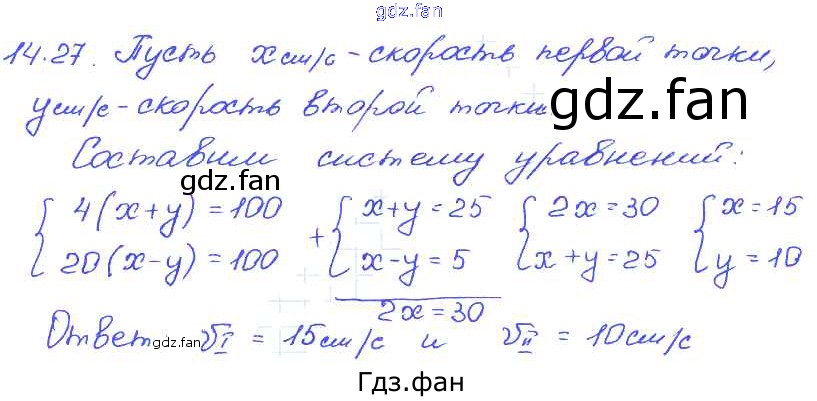 gdz.fan
14.27. Пусть x см/с - скорость первой точки,
y см/с - скорость второй точки
gdz.fan
Составим систему уравнений:
gdz.fan
{ 4(x+y) = 100 + { x+y = 25 { 2x = 30 { x = 15
20(x-y) = 100 x-y = 5 x+y = 25 y = 10
2x = 30
Ответ gdz.fan v_I = 15 см/с и v_II = 10 см/с
Гдз.фан